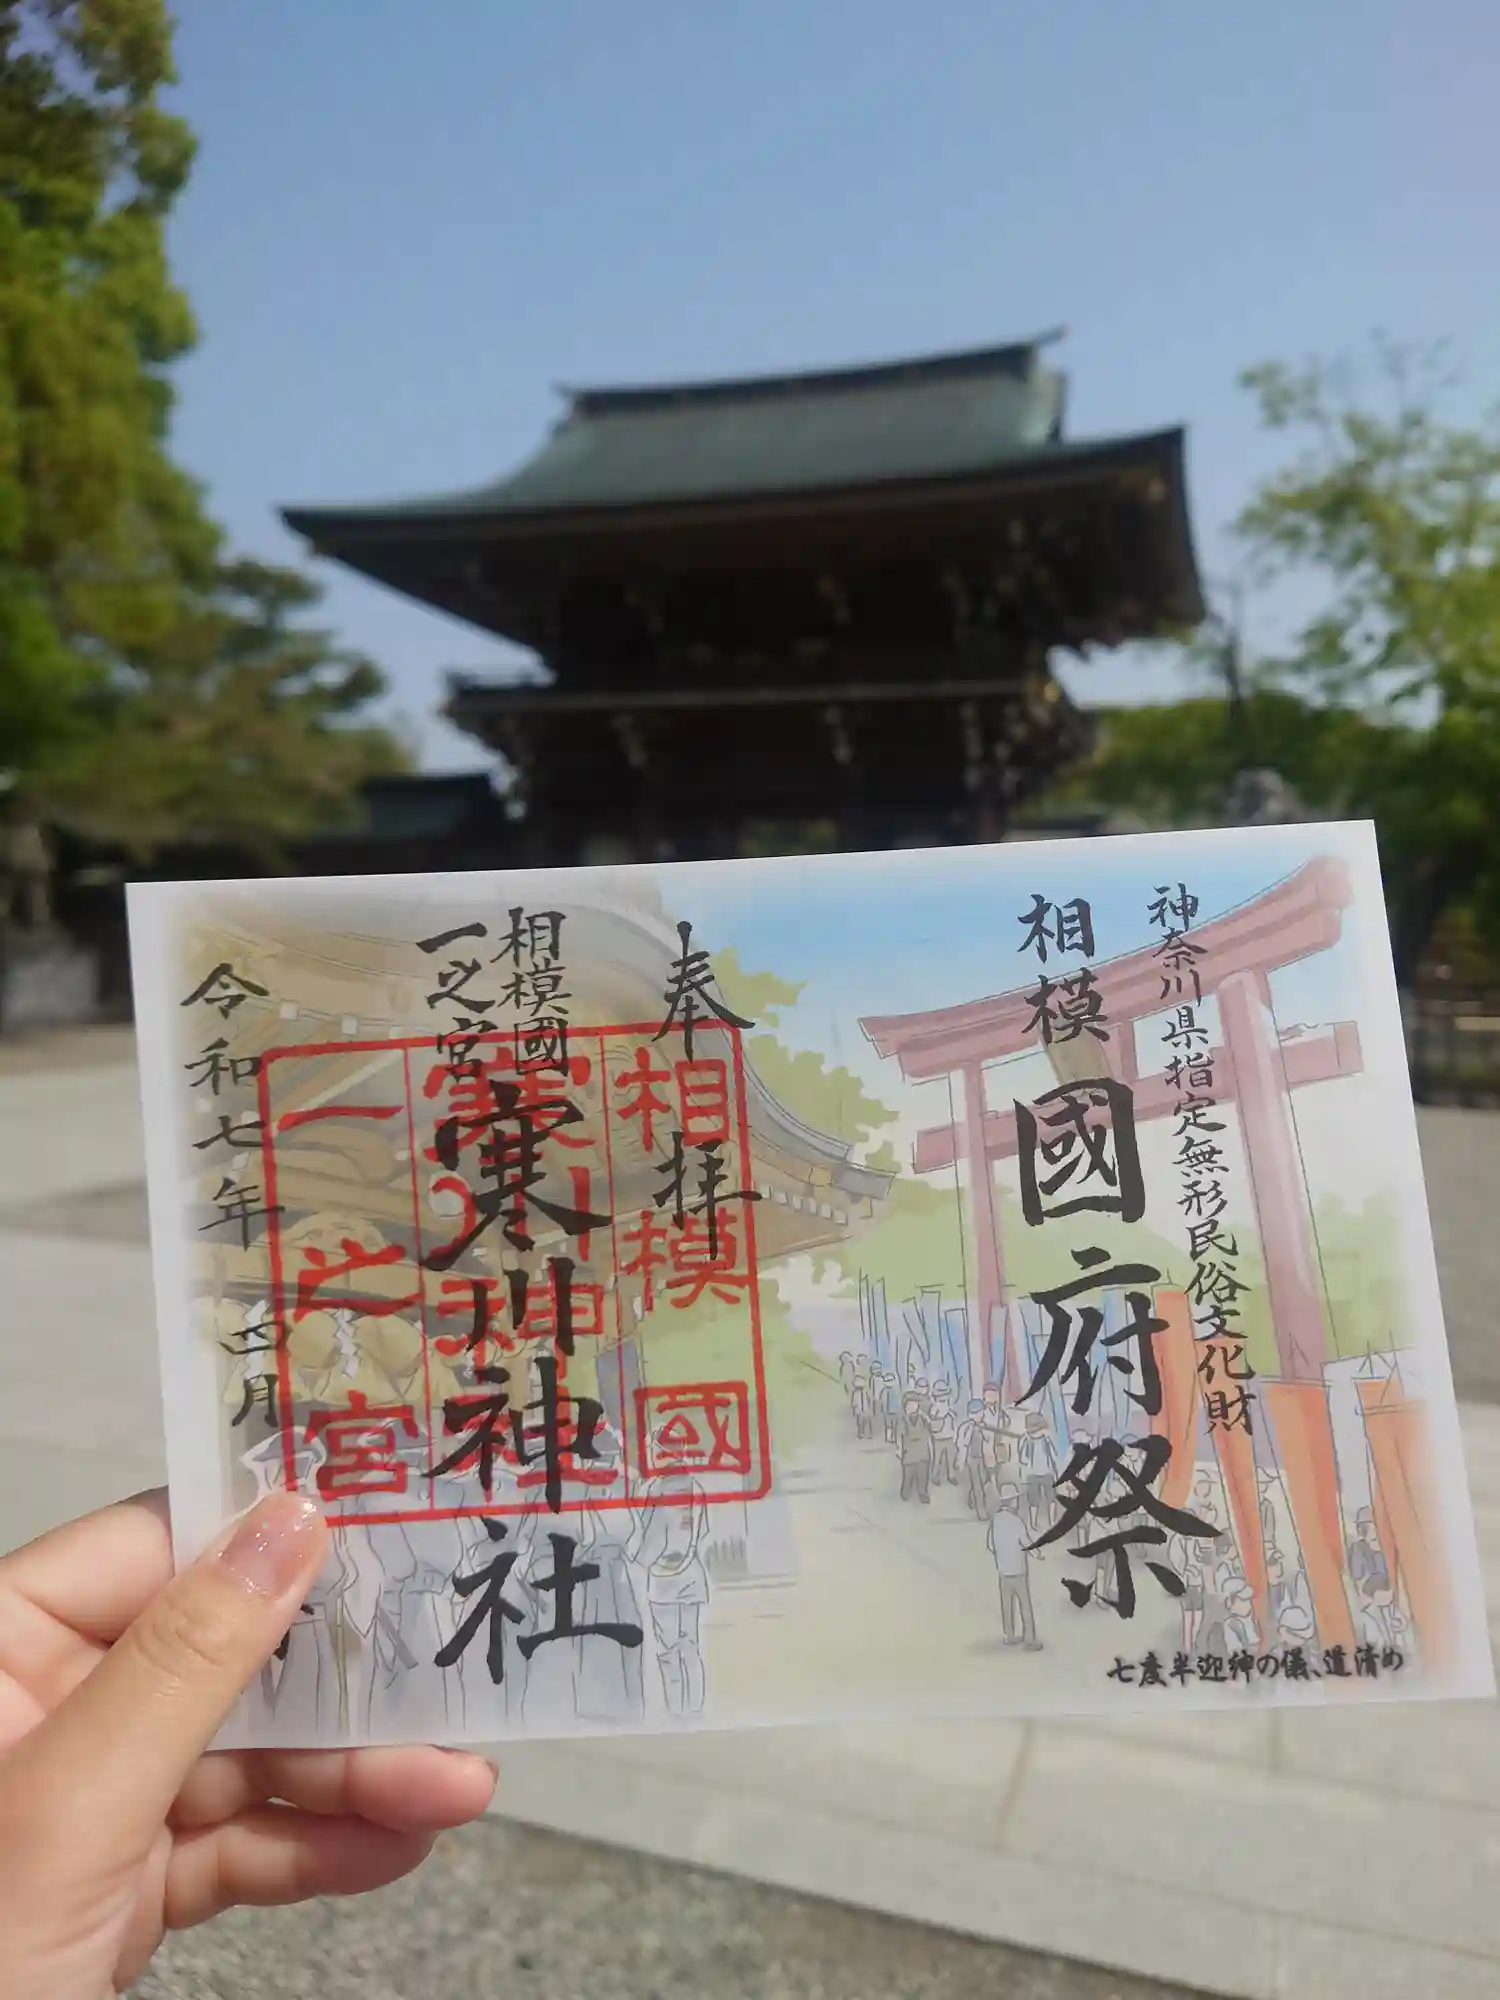 神奈川県指定無形民俗文化財
相模國府祭
七度半迎神の儀、道清め
奉拝
相模國
一之宮
寒川神社
令和七年四月
相模國
寒川神社
一之宮